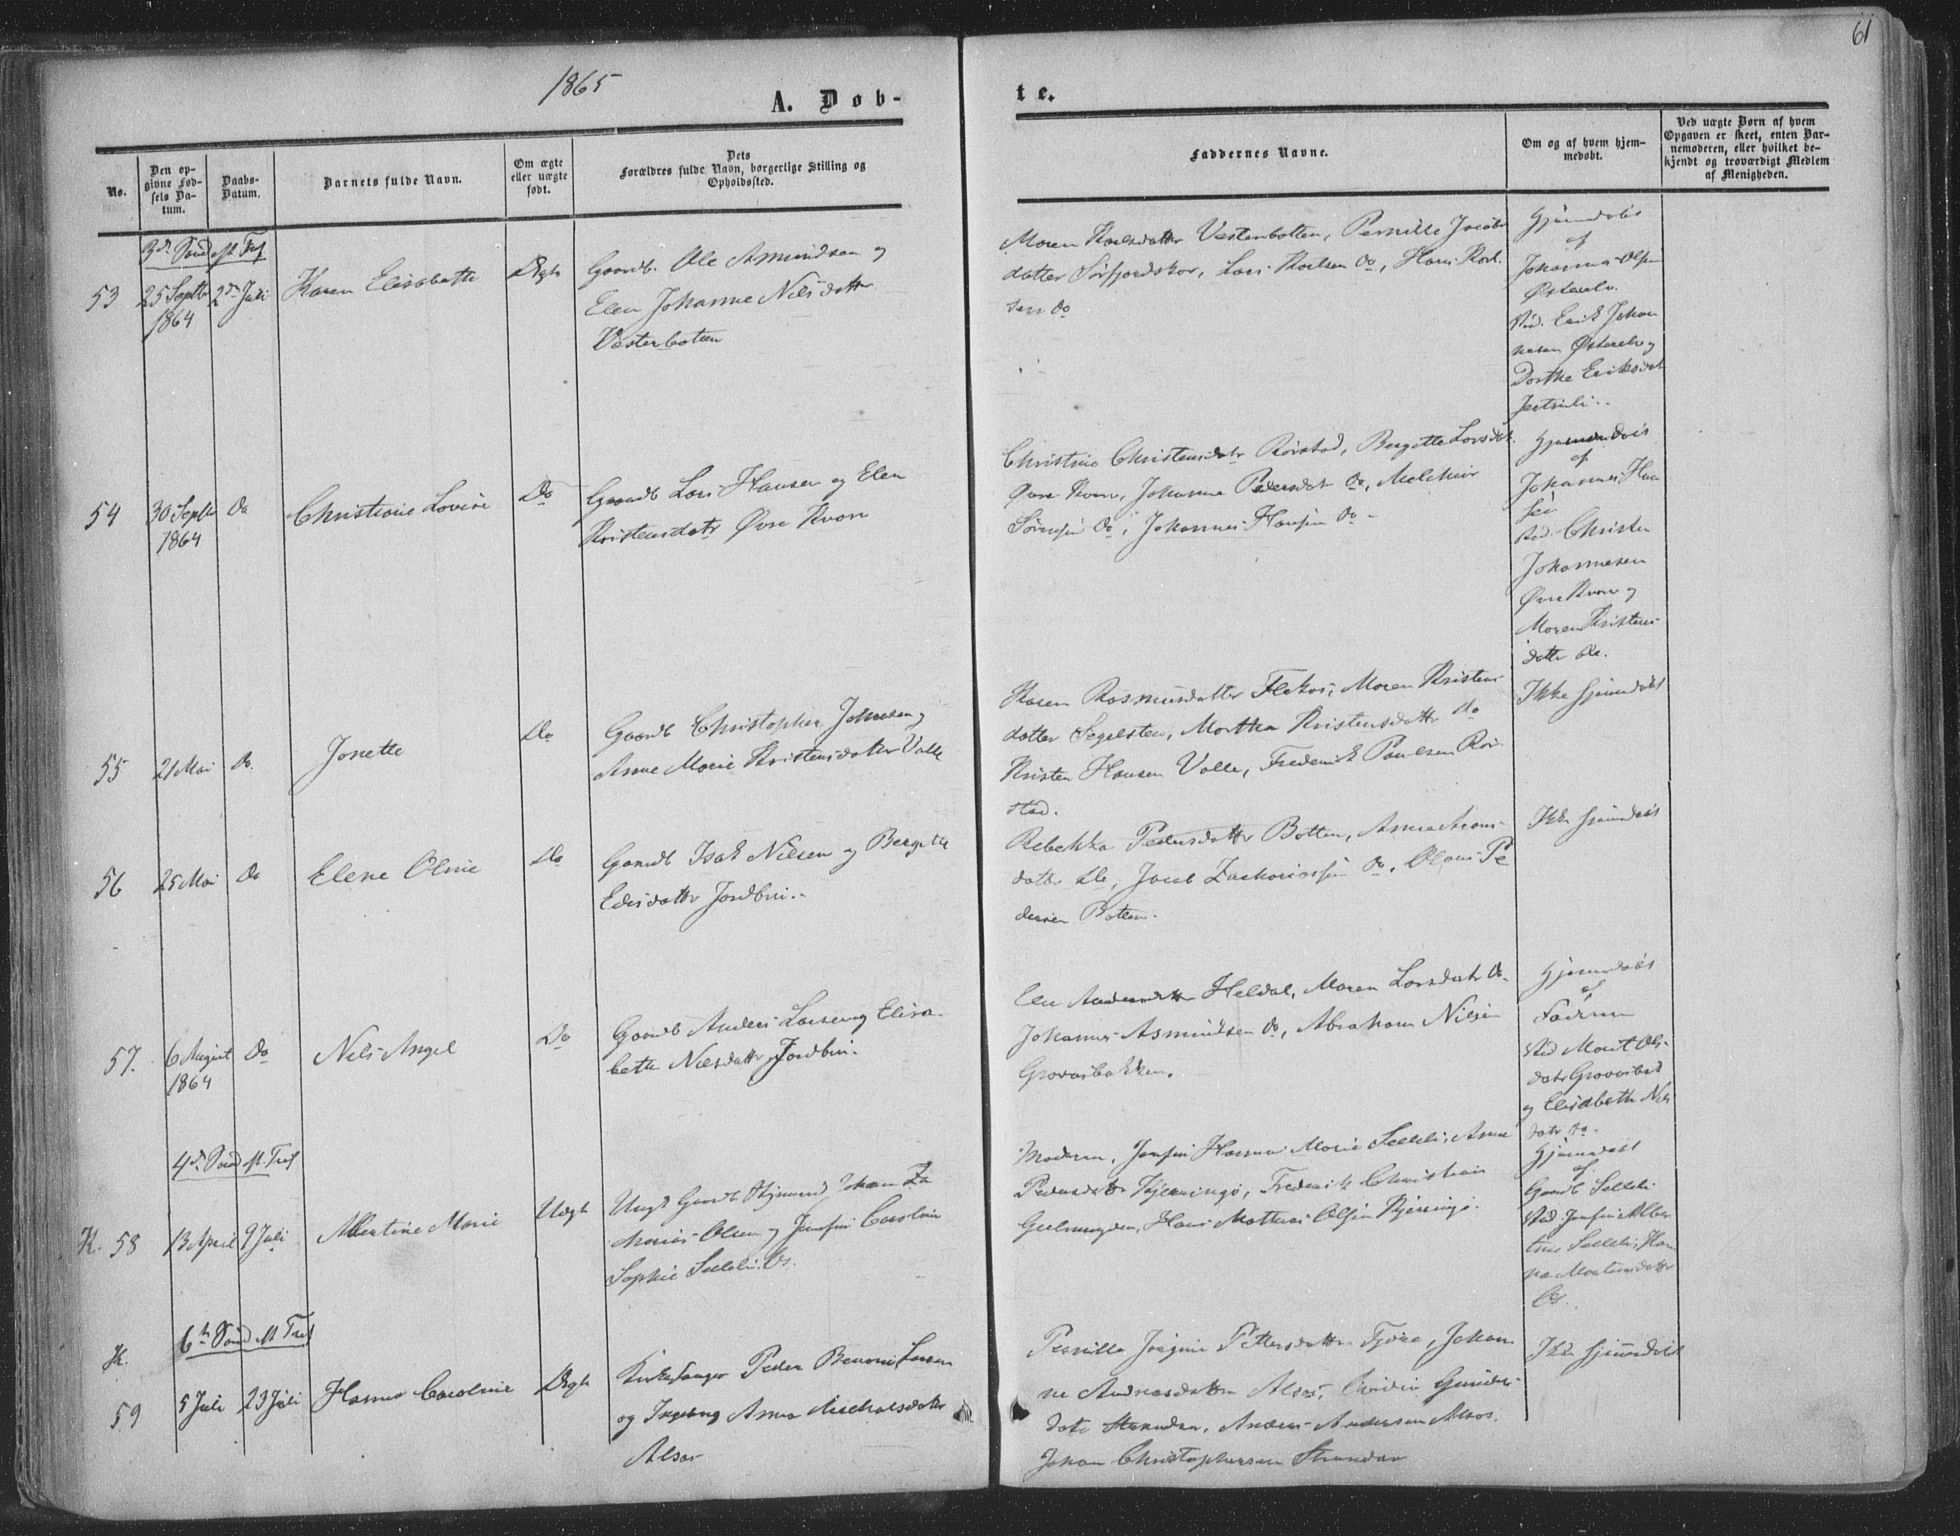 61
1865
A. Døb-
te.
No.
Den op-
givne Fød-
sels Da-
tum.
Daabs-
Datum.
Barnets fulde Navn.
Om ægte
eller uægte
født.
Dets
Forældres fulde Navn, borgerlige Stilling og
Opholdssted.
Faddernes Navne.
Om og af hvem hjem-
medøbt.
Ved uægte Børn af hvem
Opgaven er skeet, enten Bar-
nemoderen, eller hvilket be-
kjendt og troværdigt Medlem
af Menigheden.
3di Sønd eft. Tref
53
25 Septbr
1864
2den Juli
Karen Elisabeth
Ægte
Gaardb. Ole Asmundsen og
Elen Johanne Nilsdatter
Vesterbotten
Maren Roelsdatter Vesterbotten, Pernille Jacobs
datter Sørfjordskar, Lars Roelsen do, Hans Roel
sen do
Hjemdøbt
af
Johannes Olsen
Østerelv.
Ved. Erik Johan
nesen Østerelv og
Dorthe Eriksdat
54
30 Septbr
1864
Do
Christiane Lovise
Do
Gaardb Lars Hansen og Elen
Kristensdatr Øvre Kvarv
Christine Christensdatr Rørstad, Bergette Larsdat
Øvre Kvarv, Johanna Pedersdatr do, Melchior
Sørensen do, Johannes Hansen do
Hjemmedøbt
af
Johannes Han
sen
Ved. Christen
Johannesen
Øvre Kvarv og
Maren Kristens
datter do.
55
21 Mai
do.
Jonette
Do
Gaardb Christopher Johnsen og
Anne Marie Kristensdatter Valle
Karen Rasmusdatter Flekos, Maren Kristens
datter Segelsten, Martha Kristensdatter do
Kristen Hansen Valle, Frederik Paulsen Rør
stad.
Ikke hjemdøbt
56
25 Mai
Do
Elene Oline
Do
Gaardb Isak Nilsen og Bergitte
Edisdatter Jordbru
Rebekka Pedersdatter Botten, Anne Arons
datter do, Jacob Zachariassen do, Olaus Pe
dersen Botten.
Ikke hjemdøbt
57.
6 August
1864
Do
Nils Angel
Do
Gaardb Anders Larsen og Elisa
beth Nilsdatter Jordbru
Elen Andersdatter Heldal, Maren Larsdatr do
Johannes Asmundsen do, Abraham Nilsen
Grovasbakken.
Hjemmedøbt
af
Faderen
Ved Marit Ols
datr Grovasbak
og Elisabeth Nils
datr do.
4de Sønd eft. Tref
K. 58
13 April
9 Juli
Albertine Marie
Uægte
Ungk Gaardb Johan Za
charias Olsen og Josefine Caroline
Sophie
Moderen, Josefine Hanna Marie Anne
Pedersdatter Kjerringø, Frederik Christian
Hans Mathias Olsen Kjerringø.
Hjemdøbt
af
Gaardb
Ved Josefine Alber
tine Han
na Mortensdatter
6te Sønd eft Tref
K.
59
5 Juli
23 Juli
Hanna Caroline
Ægte
Kirkesanger Peder Benoni Larsen
og Ingeborg Anna Michalsdatter
Alsos
Pernille Jørgine Pettersdatter Fjære, Johan
ne Andreasdatter Alsos, Gunders
datr Strandaa, Anders Andersen Alsos.
Johan Christophersen Strandaa
Ikke hjemmedøbt